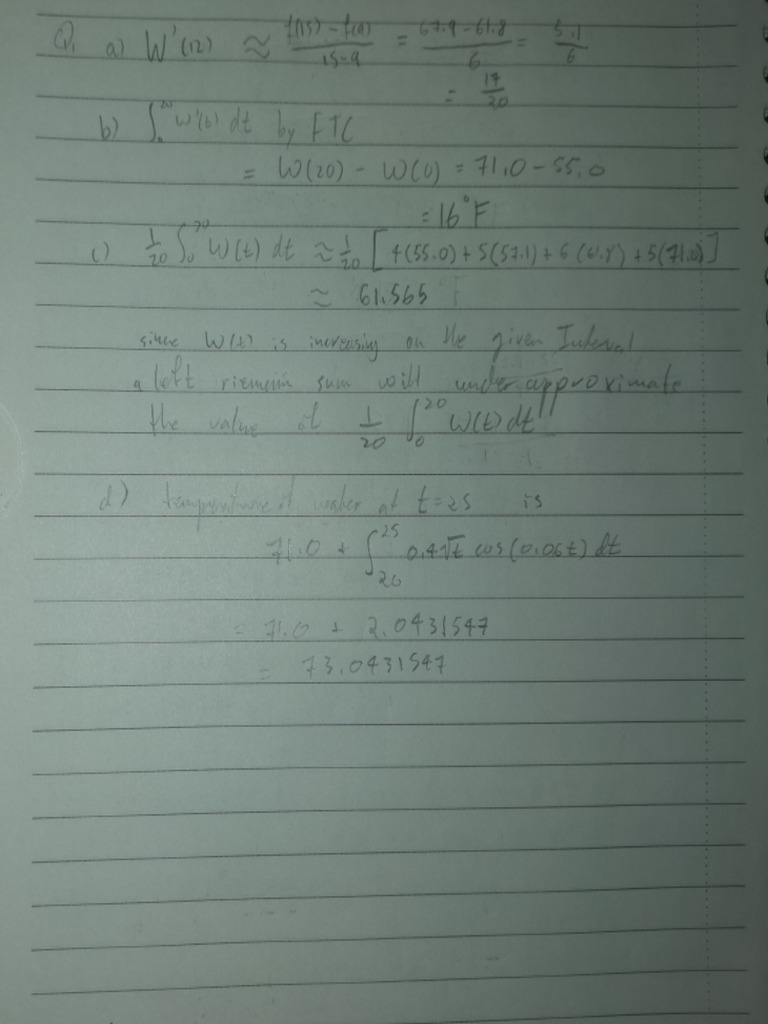 Q1 a) W'(12) ≈ f(15) - f(9) / 15-9 = 67.9 - 61.8 / 6 = 5.1 / 6
= 17/20
b) ∫₀²⁰ W'(t) dt by FTC
= W(20) - W(0) = 71.0 - 55.0
= 16°F
c) 1/20 ∫₀²⁰ W(t) dt ≈ 1/20 [4(55.0) + 5(57.1) + 6(61.8) + 5(71.0)]
≈ 61.565 °F
since W(t) is increasing on the given Interval
a left riemein sum will under approximate
the value of 1/20 ∫₀²⁰ W(t) dt
d) temperature of water at t=25 is
71.0 + ∫₂₀²⁵ 0.4√t cos(0.06t) dt
= 71.0 + 2.0431547
= 73.0431547